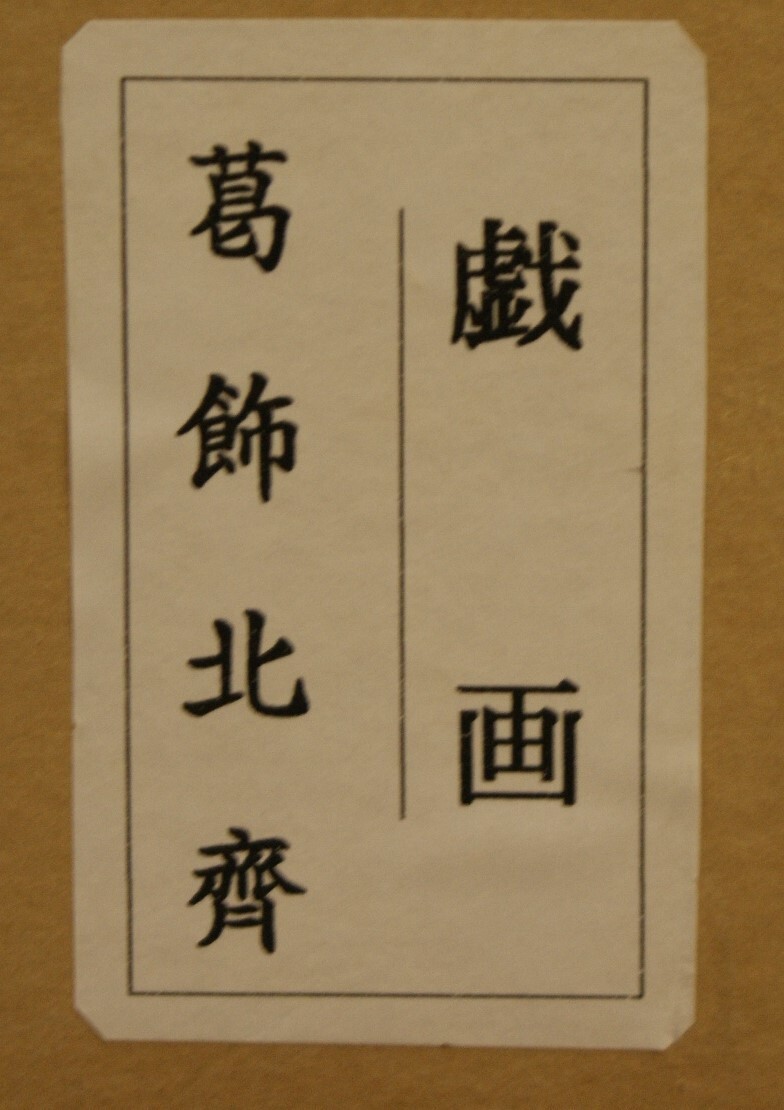 戯画
葛飾北齊